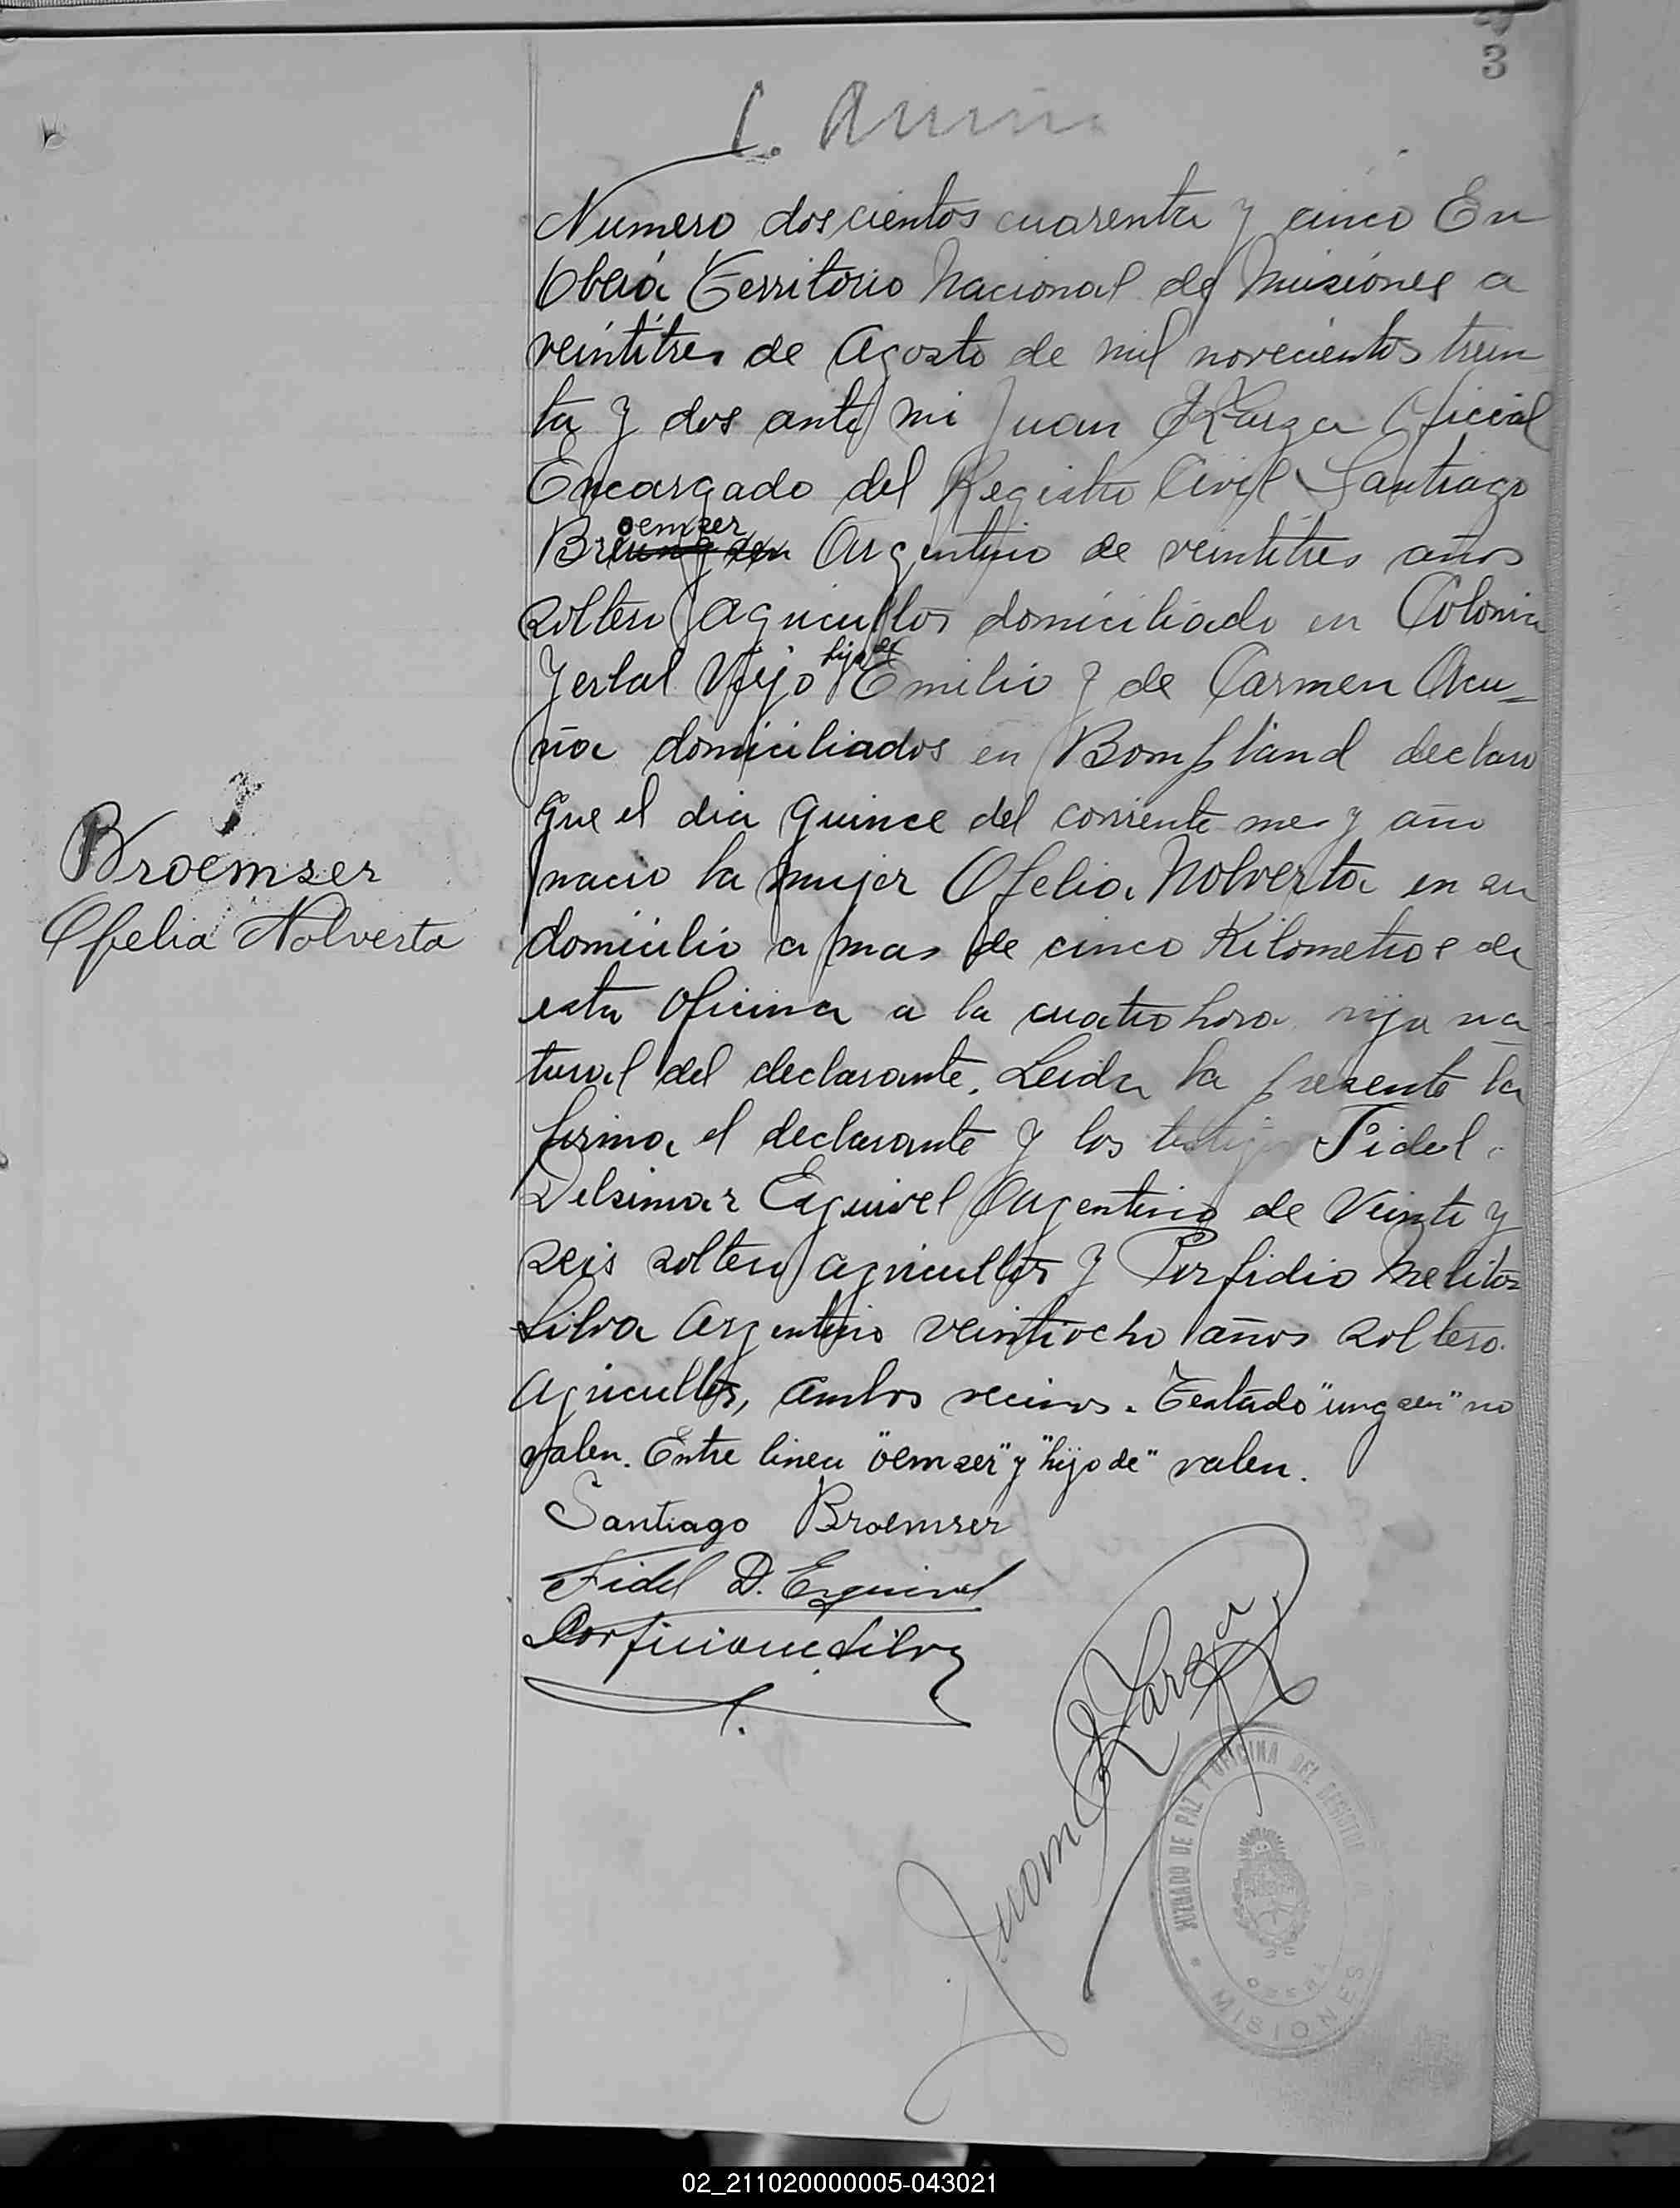 3
Numero doscientos cuarenta y cinco En
Oberá Territorio Nacional de Misiones a
veintitres de Agosto de mil novecientos trein
ta y dos ante mi Juan Karza Oficial
Encargado del Registro Civil Santiago
oemser
Breungsen Argentino de veintitres años
soltero agricultor domiciliado en Colonia
hijo de
Yerbal Viejo Emilio y de Carmen Acu=
ña domiciliados en Bompland declaro
Que el dia quince del corriente mes y año
nacio la mujer Ofelia Nolverta en su
Broemser
Ofelia Nolverta
domicilio a mas de cinco Kilometros de
esta Oficina a la cuatro hora hija na
tural del declarante. Leida la presente la
firma el declarante y los testigos Fidel
Delsimar Esquivel Argentino de Veinte y
seis soltero agricultor y Porfidio Meliton
Silva Argentino veintiocho años soltero
Agricultor, ambos vecinos. Testado "ungsen" no
valen. Entre linea "oemser" y "hijo de" valen.
Santiago Broemser
Fidel D. Esquivel
Silva
Juan Karza
JUZGADO DE PAZ Y OFICINA DEL REGISTRO
OBERÁ
MISIONES
02_211020000005-043021